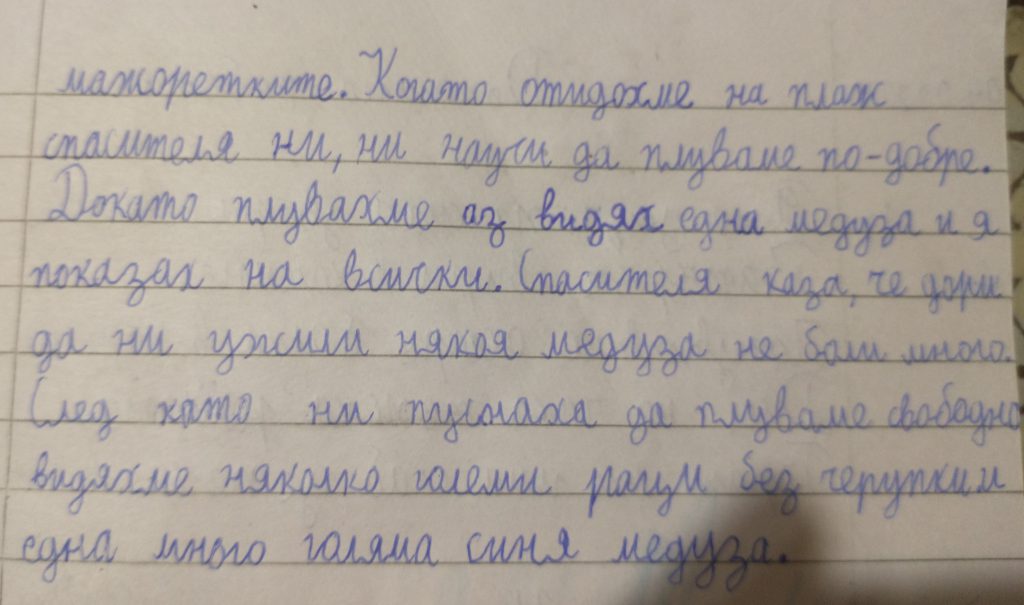 мажоретките. Когато отидохме на плаж
спасителя ни, ни научи да плуваме по-добре.
Докато плувахме аз видях една медуза и я
показах на всички. Спасителя каза, че дори
да ни ужили някоя медуза не боли много.
След като ни пуснаха да плуваме свободно
видяхме няколко големи раци без черупки и
една много голяма синя медуза.